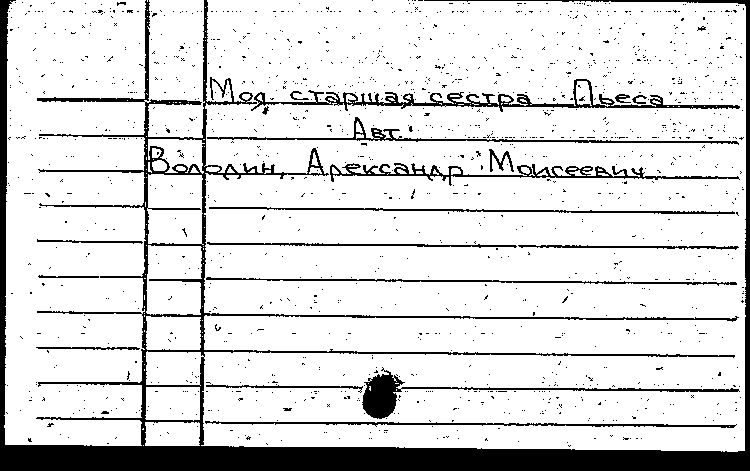 Моя старшая сестра. Пьеса
Авт.:
Володин, Александр Моисеевич.